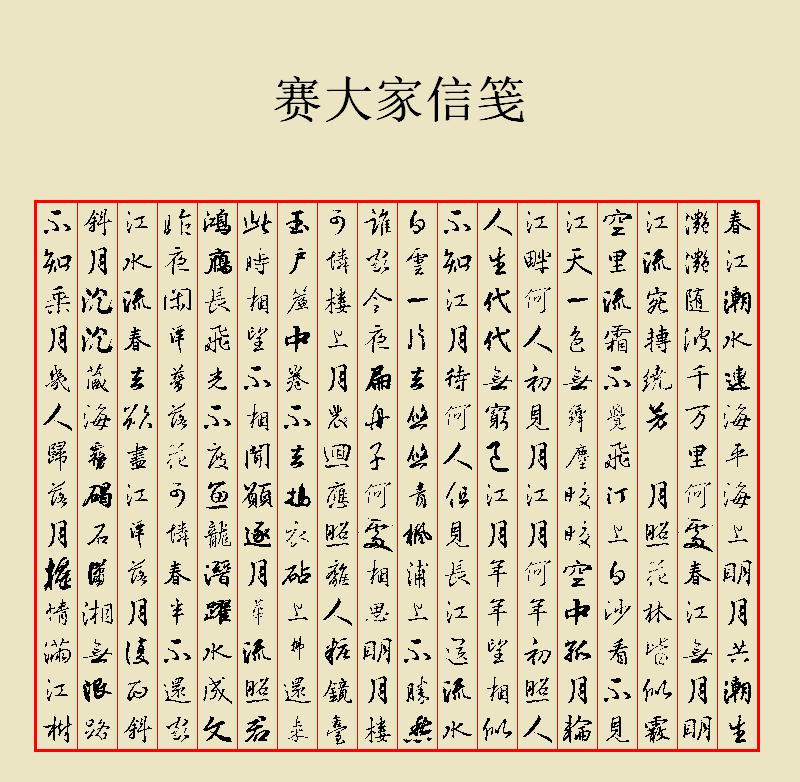 赛大家信笺
春江潮水連海平海上明月共潮生
灧灧随波千万里何處春江無月明
江流宛轉繞芳 月照花林皆似霰
空里流霜不覺飛汀上白沙看不見
江天一色無纖塵皎皎空中孤月輪
江畔何人初見月江月何年初照人
人生代代無窮已江月年年望相似
不知江月待何人但見長江送流水
白雲一片去悠悠青楓浦上不勝愁
誰家今夜扁舟子何處相思明月楼
可憐楼上月裴迴應照離人粧鏡臺
玉户簾中卷不去搗衣砧上拂還来
此時相望不相聞願逐月華流照君
鴻雁長飛光不度魚龍潛躍水成文
昨夜閑潭夢落花可憐春半不還家
江水流春去欲盡江潭落月復西斜
斜月沉沉藏海霧碣石瀟湘無限路
不知乘月幾人歸落月搖情滿江樹